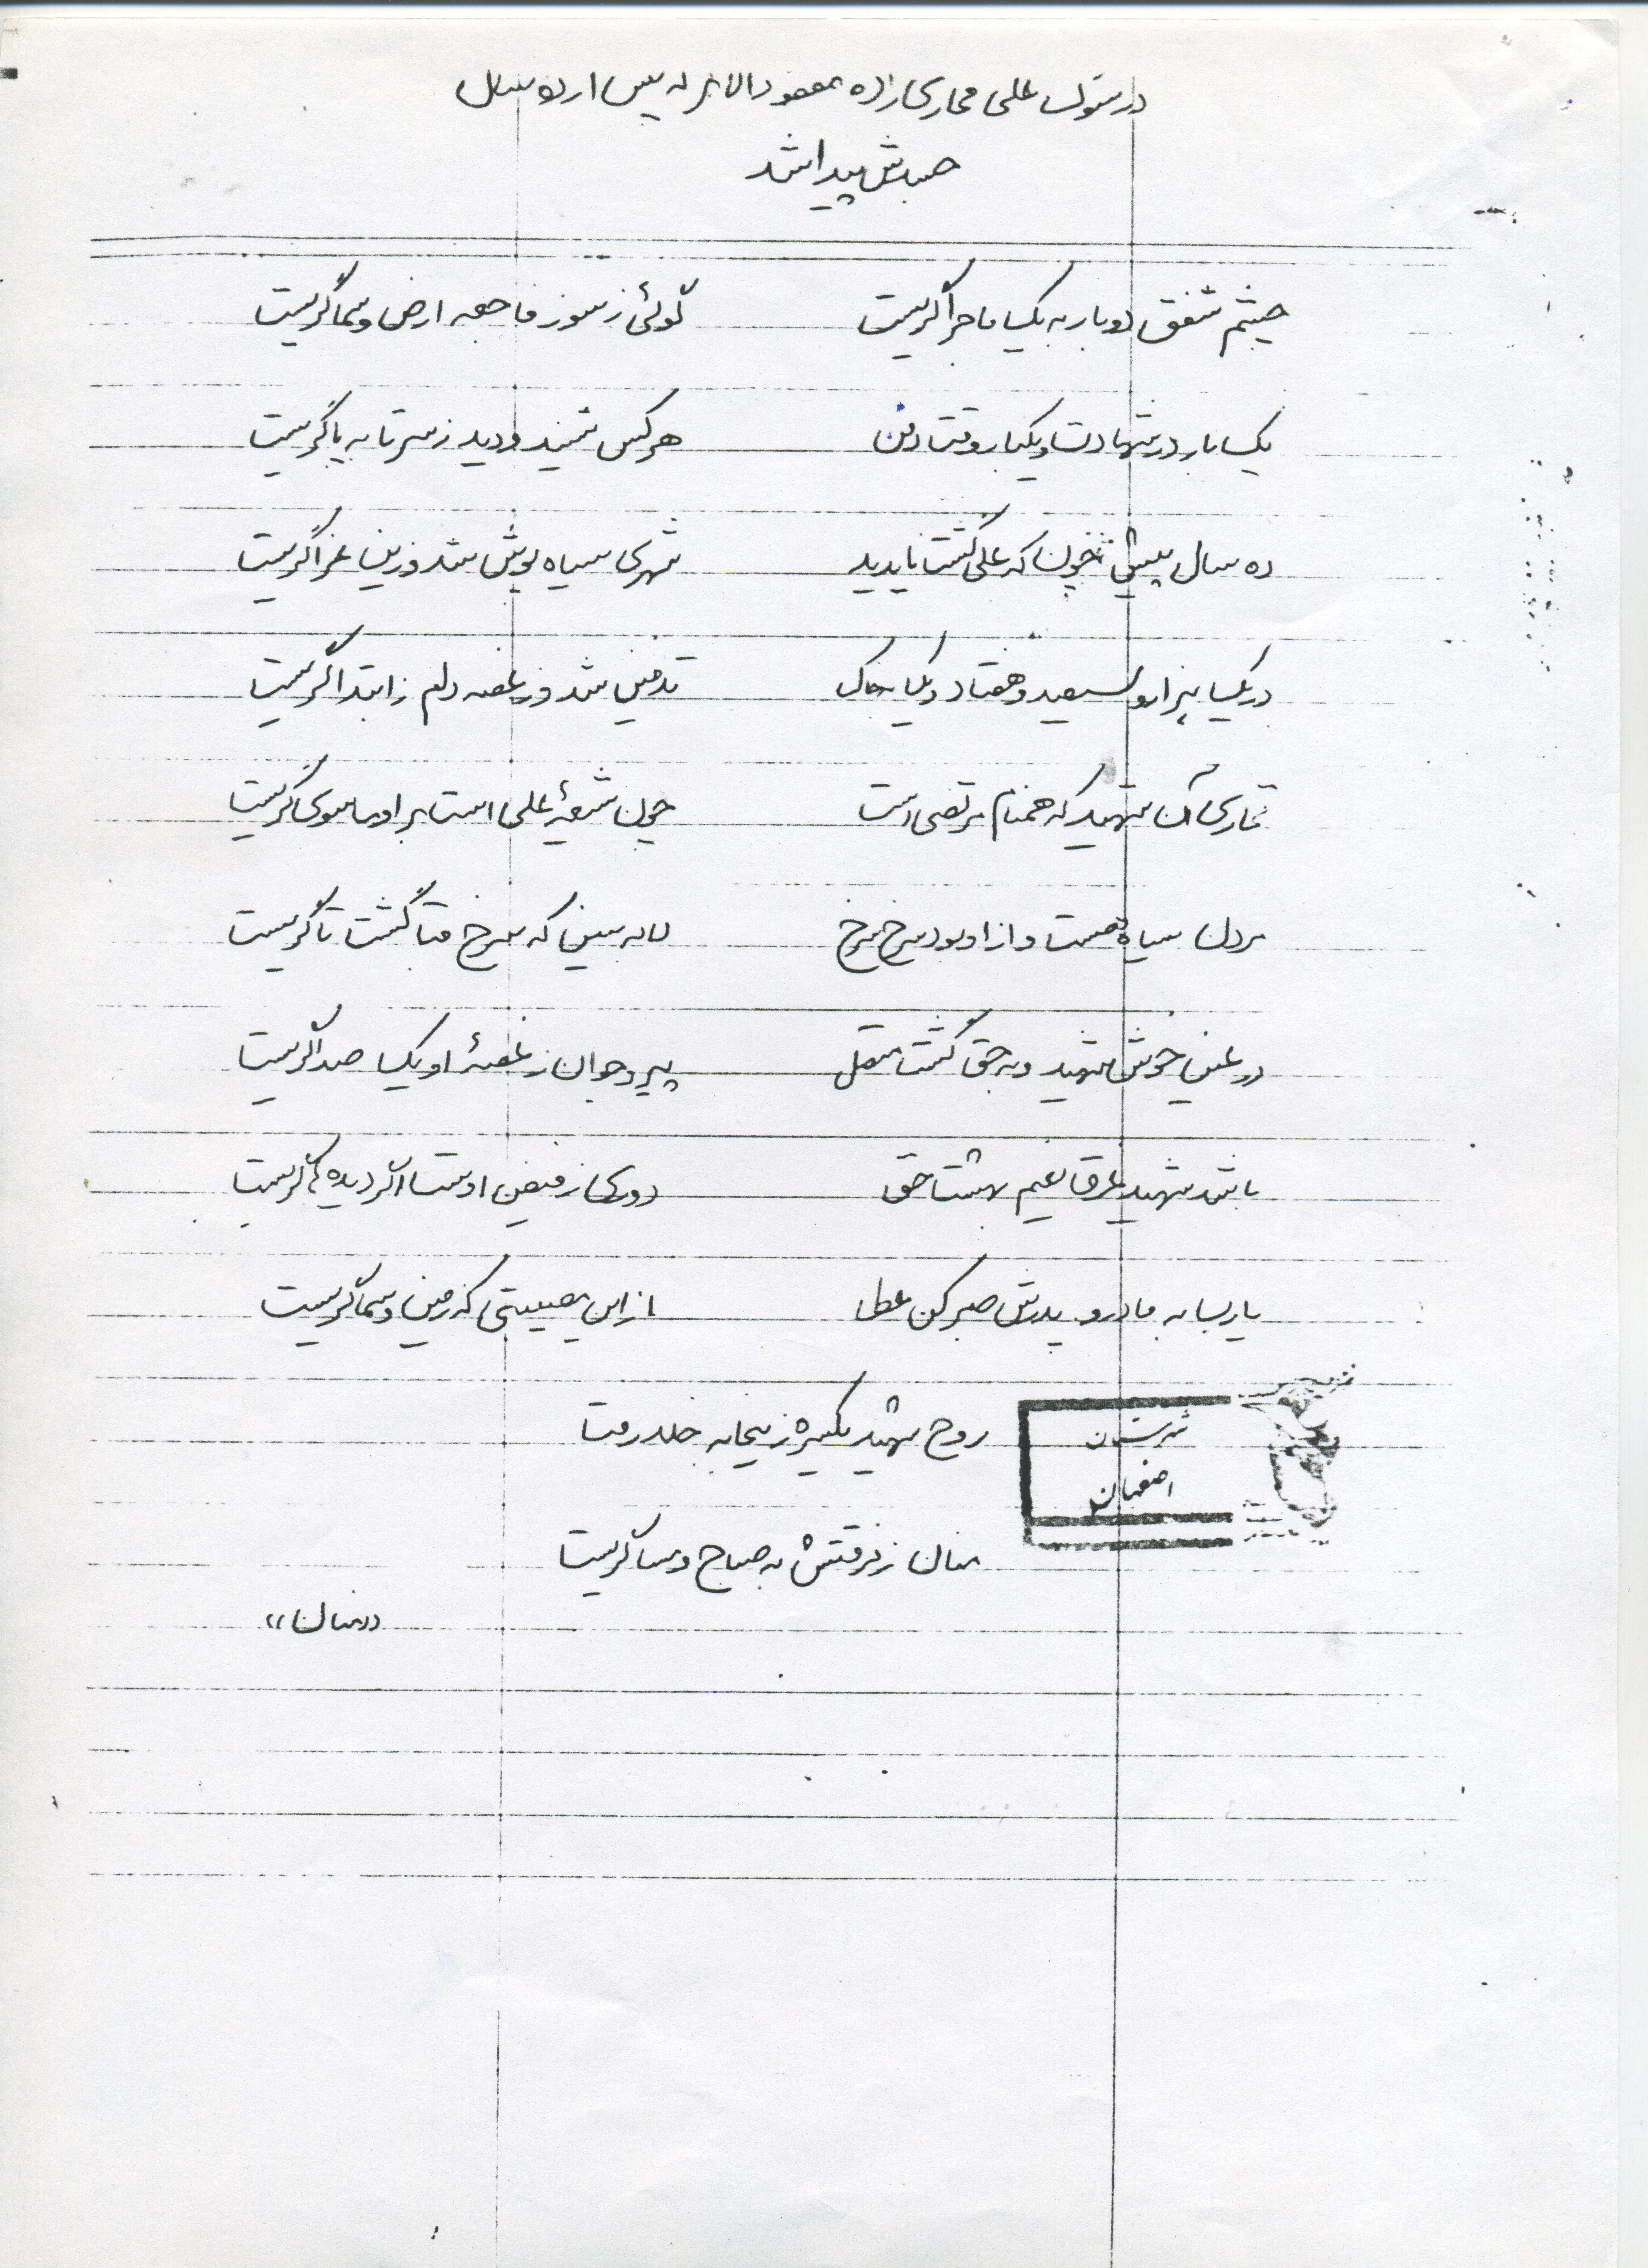 در سوگ علی نجاری زاده مفقودالاثر که پس از ده سال
جسدش پیدا شد
چشم شفق دوبار به یک ماجرا گریست گوئی ز سوز فاجعه ارض و سما گریست
یک بار در شهادت و یکبار وقت دفن هر کس شنید و دید ز سر تا به پا گریست
ده سال پیش چون که علی گشت ناپدید شهری سیاه پوش شد و زین عزا گریست
در یک هزار و سیصد و هفتاد و یک به خاک تدفین شد و ز غصه دلم ز ابتدا گریست
نجاری آن شهید که همنام مرتضی است چون شیعهٔ علی است بر او ماسوی گریست
سیاه هست و از او بود سرخ سرخ لاله ببین که سرخ قبا گشت تا گریست
در عین خوش شهید و به حق گشت متصل پیر و جوان ز غصهٔ او یک صدا گریست
باشد شهید غرق نعیم بهشت حق دوری ز فیض اوست اگر دیده‌ها گریست
یارب به مادر و پدرش صبر کن عطا از این مصیبتی که زمین و سما گریست
روح شهید یکسره زینجا به خلد رفت
منان ز فرقتش به صباح و مسا گریست
«منان»
شهرستان
اصفهان